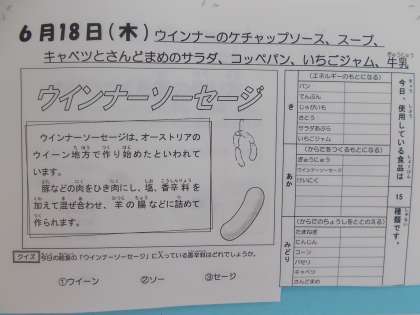 6月18日(木)ウインナーのケチャップソース、スープ、
キャベツとさんどまめのサラダ、コッペパン、いちごジャム、牛乳
ウインナーソーセージ
ウインナーソーセージは、オーストリアの
ウイーン地方で作り始めたといわれて
います。
豚などの肉をひき肉にし、塩、香辛料を
加えて混ぜ合わせ、羊の腸などに詰めて
作られます。
クイズ 今日の給食の「ウインナーソーセージ」に入っている香辛料はどれでしょう。
①ウイーン ②ソー ③セージ
今日、使用している食品は
15
種類です。
き
(エネルギーのもとになる)
パン
でんぷん
じゃがいも
さとう
サラダあぶら
いちごジャム
あか
(からだをつくるもとになる)
ぎゅうにゅう
ウインナーソーセージ
けいにく
みどり
(からだのちょうしをととのえる)
たまねぎ
にんじん
コーン
パセリ
キャベツ
さんどまめ